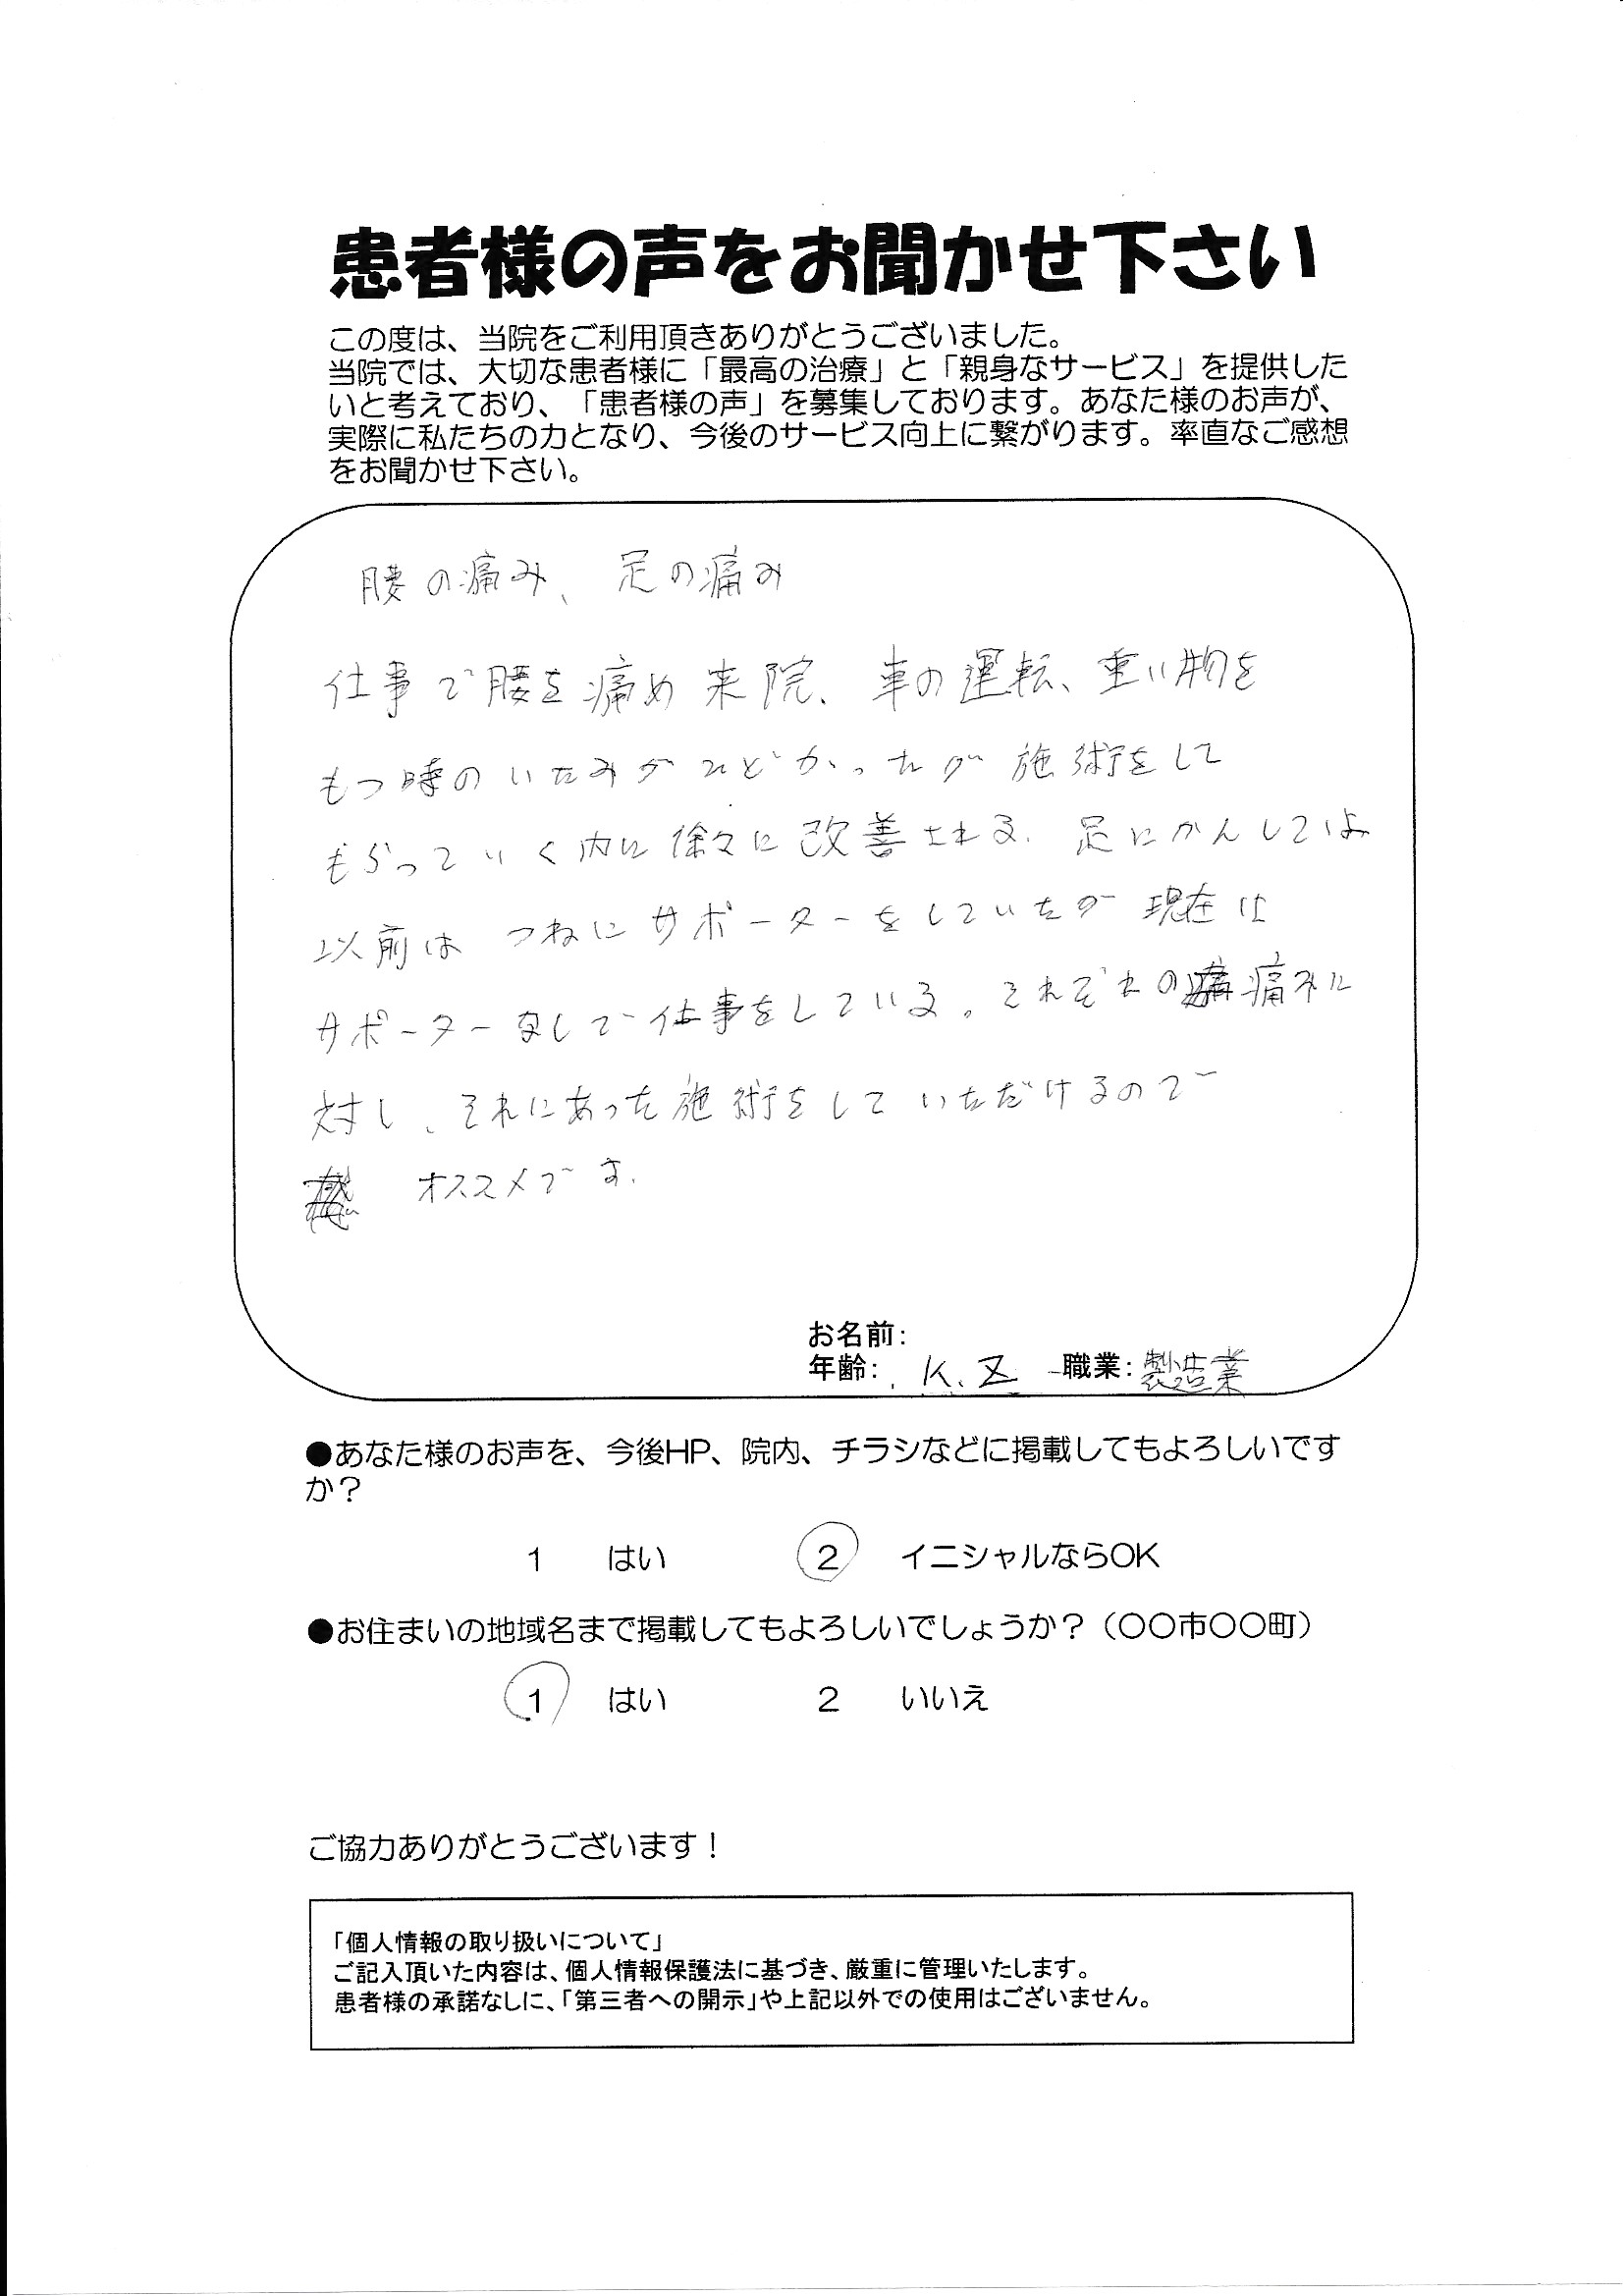 患者様の声をお聞かせ下さい
この度は、当院をご利用頂きありがとうございました。
当院では、大切な患者様に「最高の治療」と「親身なサービス」を提供した
いと考えており、「患者様の声」を募集しております。あなた様のお声が、
実際に私たちの力となり、今後のサービス向上に繋がります。率直なご感想
をお聞かせ下さい。
腰の痛み、足の痛み
仕事で腰を痛め来院、車の運転、重い物を
もつ時のいたみがひどかったが施術をして
もらっていく内に徐々に改善される。足にかんしては
以前はつねにサポーターをしていたが現在は
サポーターなしで仕事をしている。それぞれの痛みに
対し、それにあった施術をしていただけるので
オススメです。
お名前:
年齢: K.Z 職業:製造業
●あなた様のお声を、今後HP、院内、チラシなどに掲載してもよろしいです
か?
1 はい 2 イニシャルならOK
●お住まいの地域名まで掲載してもよろしいでしょうか?(〇〇市〇〇町)
1 はい 2 いいえ
ご協力ありがとうございます!
「個人情報の取り扱いについて」
ご記入頂いた内容は、個人情報保護法に基づき、厳重に管理いたします。
患者様の承諾なしに、「第三者への開示」や上記以外での使用はございません。